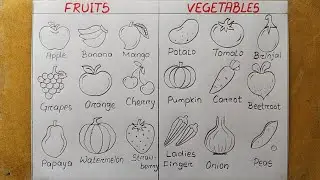 FRUITS
VEGETABLES
Apple
Banana
Mango
Potato
Tomato
Brinjal
Grapes
Orange
Cherry
Pumpkin
Carrot
Beetroot
Papaya
Watermelon
Straw-
berry
Ladies
Finger
Onion
Peas